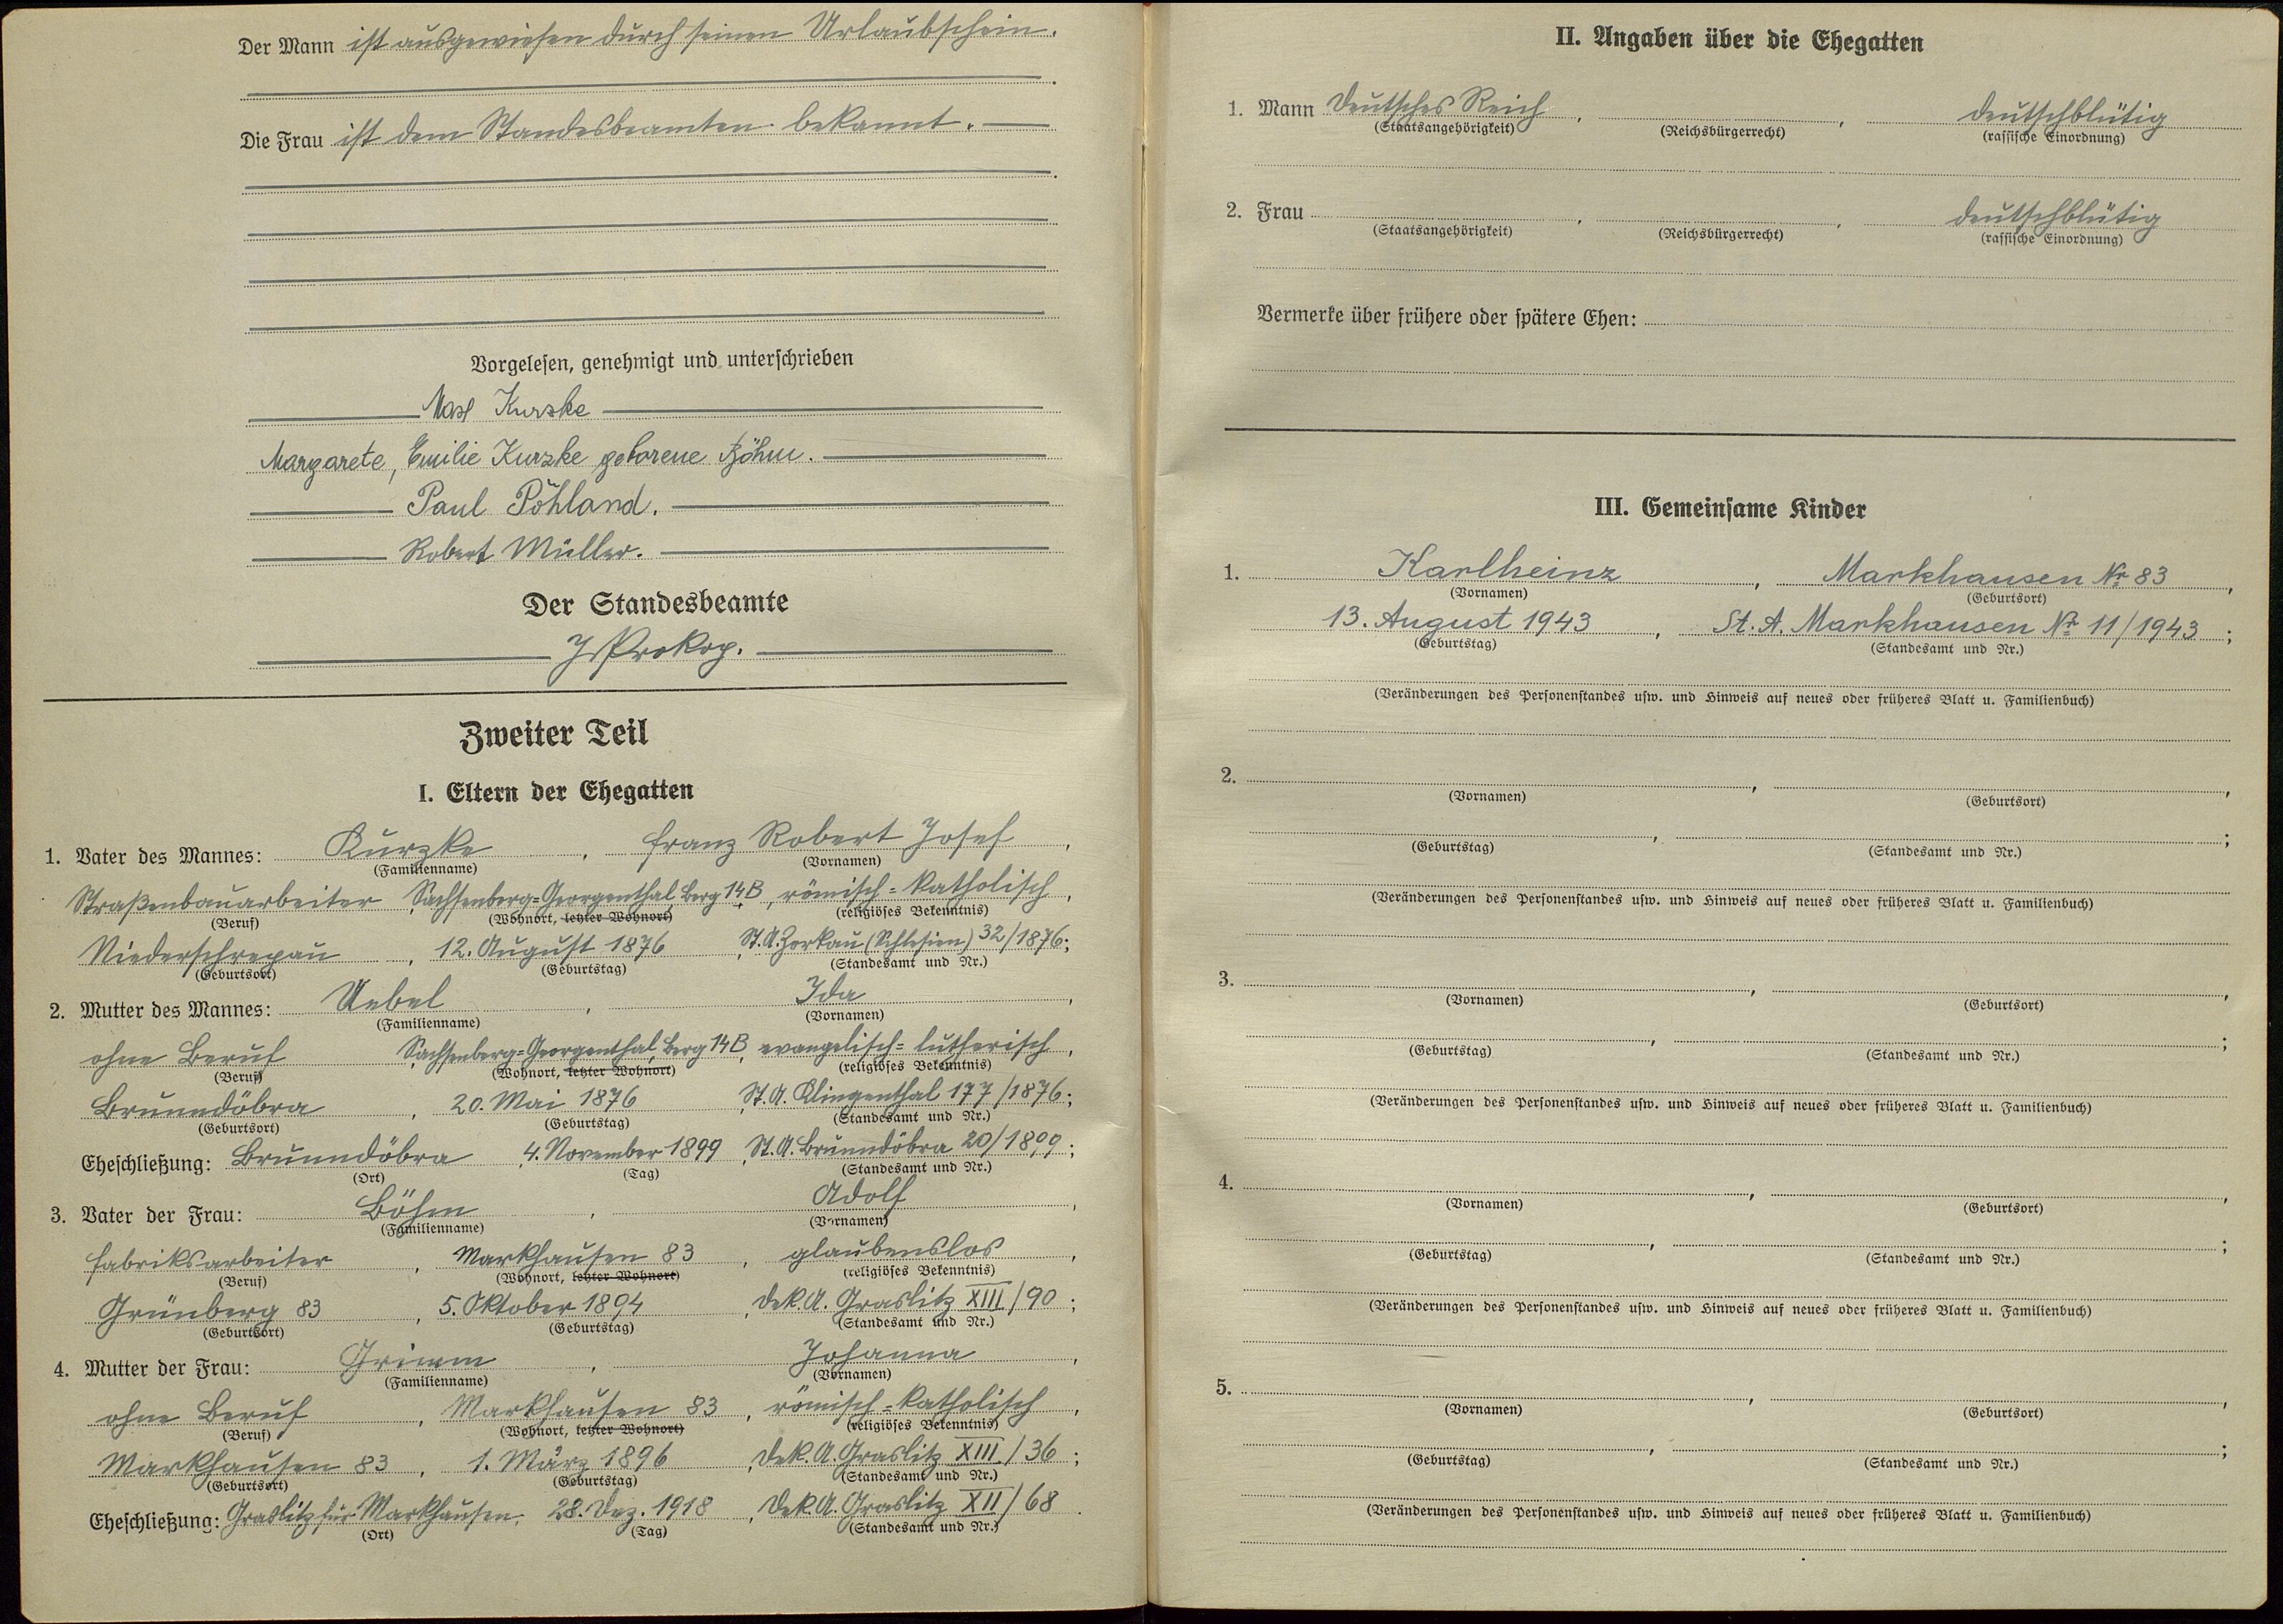 Der Mann ist ausgewiesen durch seinen Urlaubschein.
Die Frau ist dem Standesbeamten bekannt.
Vorgelesen, genehmigt und unterschrieben
Max Kurzke
Margarete, Emilie Kurzke geborene Böhm.
Paul Pöhland.
Robert Müller.
Der Standesbeamte
Prokop.
Zweiter Teil
I. Eltern der Ehegatten
1. Vater des Mannes: Kurzke, Franz Robert Josef,
(Familienname) (Vornamen)
Straßenbauarbeiter, Sachsenberg=Georgenthal, Berg 14B, römisch=katholisch,
(Beruf) (Wohnort, letzter Wohnort) (religiöses Bekenntnis)
12. August 1876, St.A. Zerkau (Schlesien) 32/1876;
(Geburtsort) (Geburtstag) (Standesamt und Nr.)
2. Mutter des Mannes: Uebel, Ida,
(Familienname) (Vornamen)
ohne Beruf, Sachsenberg=Georgenthal, Berg 14B, evangelisch=lutherisch,
(Beruf) (Wohnort, letzter Wohnort) (religiöses Bekenntnis)
Brunndöbra, 20. Mai 1876, St.A. Klingenthal 177/1876;
(Geburtsort) (Geburtstag) (Standesamt und Nr.)
Eheschließung: Brunndöbra, 4. November 1899, St.A. Brunndöbra 20/1899;
(Ort) (Tag) (Standesamt und Nr.)
3. Vater der Frau: Böhm, Adolf,
(Familienname) (Vornamen)
Fabriksarbeiter, Markhausen 83, glaubenslos,
(Beruf) (Wohnort, letzter Wohnort) (religiöses Bekenntnis)
Grünberg 83, 5. Oktober 1894, Dek.A. Graslitz XIII/90;
(Geburtsort) (Geburtstag) (Standesamt und Nr.)
4. Mutter der Frau: Grimm, Johanna,
(Familienname) (Vornamen)
ohne Beruf, Markhausen 83, römisch=katholisch,
(Beruf) (Wohnort, letzter Wohnort) (religiöses Bekenntnis)
Markhausen 83, 1. März 1896, Dek.A. Graslitz XIII/36;
(Geburtsort) (Geburtstag) (Standesamt und Nr.)
Eheschließung: Graslitz für Markhausen, 28. Dez. 1918, Dek.A. Graslitz XII/68.
(Ort) (Tag) (Standesamt und Nr.)
II. Angaben über die Ehegatten
1. Mann Deutsches Reich, , deutschblütig
(Staatsangehörigkeit) (Reichsbürgerrecht) (rassische Einordnung)
2. Frau , , deutschblütig
(Staatsangehörigkeit) (Reichsbürgerrecht) (rassische Einordnung)
Vermerke über frühere oder spätere Ehen:
III. Gemeinsame Kinder
1. Karlheinz, Markhausen Nr 83,
(Vornamen) (Geburtsort)
13. August 1943, St. A. Markhausen Nr 11/1943;
(Geburtstag) (Standesamt und Nr.)
(Veränderungen des Personenstandes usw. und Hinweis auf neues oder früheres Blatt u. Familienbuch)
2. , ,
(Vornamen) (Geburtsort)
, ;
(Geburtstag) (Standesamt und Nr.)
(Veränderungen des Personenstandes usw. und Hinweis auf neues oder früheres Blatt u. Familienbuch)
3. , ,
(Vornamen) (Geburtsort)
, ;
(Geburtstag) (Standesamt und Nr.)
(Veränderungen des Personenstandes usw. und Hinweis auf neues oder früheres Blatt u. Familienbuch)
4. , ,
(Vornamen) (Geburtsort)
, ;
(Geburtstag) (Standesamt und Nr.)
(Veränderungen des Personenstandes usw. und Hinweis auf neues oder früheres Blatt u. Familienbuch)
5. , ,
(Vornamen) (Geburtsort)
, ;
(Geburtstag) (Standesamt und Nr.)
(Veränderungen des Personenstandes usw. und Hinweis auf neues oder früheres Blatt u. Familienbuch)